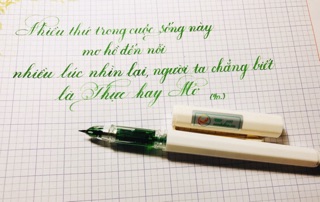 Nhiều thứ trong cuộc sống này
mơ hồ đến nỗi
nhiều lúc nhìn lại, người ta chẳng biết
là Thực hay Mơ